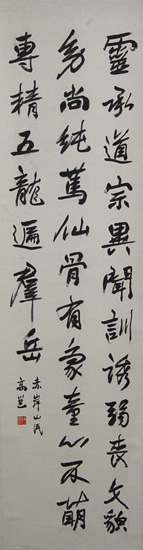 靈承道宗異聞訓誘弱喪文貌
尚純篤仙骨有象童心不萌
專精五龍遍羣岳
赤岸山民
高